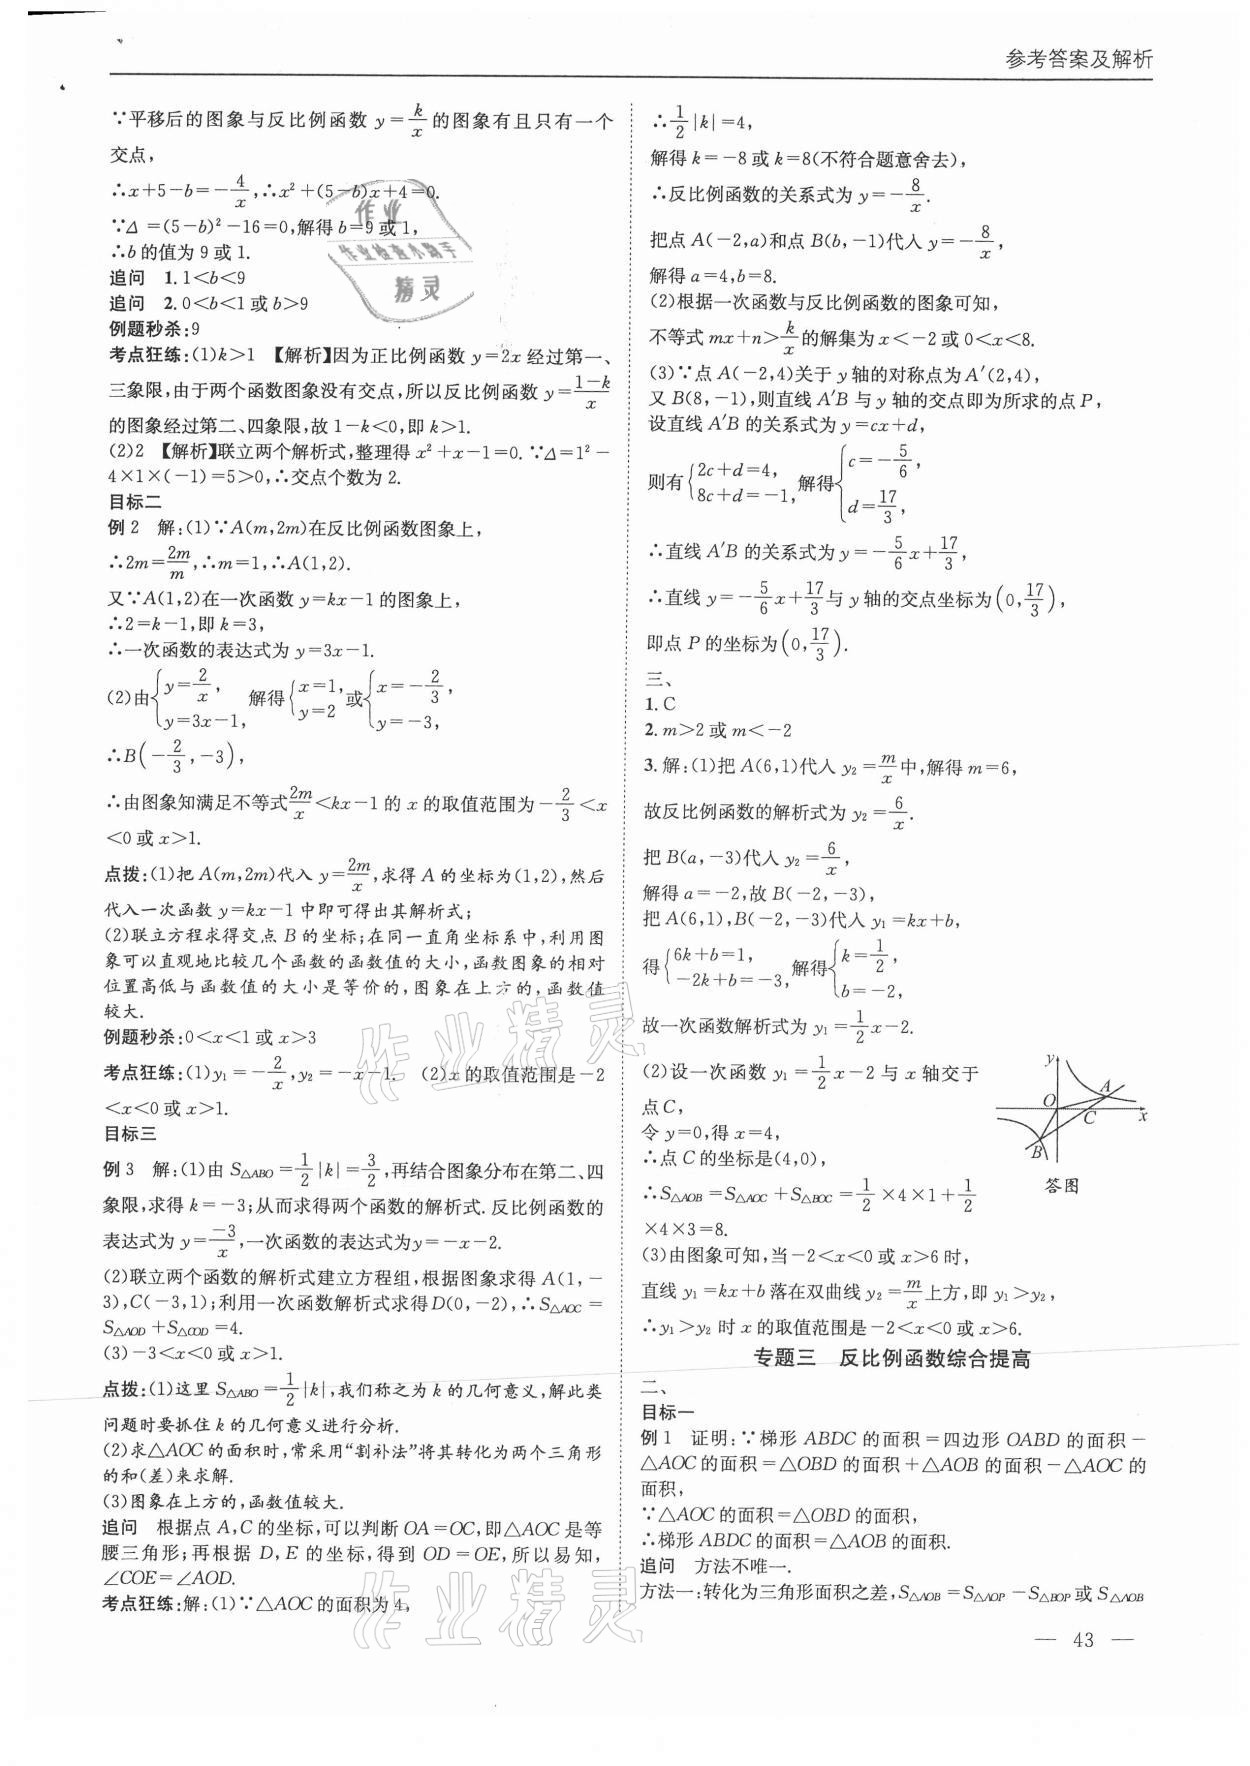 参考答案及解析
∵平移后的图象与反比例函数 y=k/x 的图象有且只有一个
交点,
∴x+5-b=-4/x,∴x²+(5-b)x+4=0.
∵Δ=(5-b)²-16=0,解得 b=9 或 1,
∴b 的值为 9 或 1.
追问 1.1<b<9
追问 2.0<b<1 或 b>9
例题秒杀:9
考点狂练:(1)k>1 【解析】因为正比例函数 y=2x 经过第一、
三象限,由于两个函数图象没有交点,所以反比例函数 y=(1-k)/x
的图象经过第二、四象限,故 1-k<0,即 k>1.
(2)2 【解析】联立两个解析式,整理得 x²+x-1=0.∵Δ=1²-
4×1×(-1)=5>0,∴交点个数为 2.
目标二
例 2 解:(1)∵A(m,2m)在反比例函数图象上,
∴2m=2m/m,∴m=1,∴A(1,2).
又∵A(1,2)在一次函数 y=kx-1 的图象上,
∴2=k-1,即 k=3,
∴一次函数的表达式为 y=3x-1.
(2)由{y=2/x, y=3x-1, 解得{x=1, y=2 或{x=-2/3, y=-3,
∴B(-2/3,-3),
∴由图象知满足不等式2m/x<kx-1 的 x 的取值范围为-2/3<x
<0 或 x>1.
点拨:(1)把 A(m,2m)代入 y=2m/x,求得 A 的坐标为(1,2),然后
代入一次函数 y=kx-1 中即可得出其解析式;
(2)联立方程求得交点 B 的坐标;在同一直角坐标系中,利用图
象可以直观地比较几个函数的函数值的大小,函数图象的相对
位置高低与函数值的大小是等价的,图象在上方的,函数值
较大.
例题秒杀:0<x<1 或 x>3
考点狂练:(1)y₁=-2/x,y₂=-x-1. (2)x 的取值范围是-2
<x<0 或 x>1.
目标三
例 3 解:(1)由 S△ABO=1/2|k|=3/2,再结合图象分布在第二、四
象限,求得 k=-3;从而求得两个函数的解析式.反比例函数的
表达式为 y=-3/x,一次函数的表达式为y=-x-2.
(2)联立两个函数的解析式建立方程组,根据图象求得 A(1,-
3),C(-3,1);利用一次函数解析式求得D(0,-2),∴S△AOC=
S△AOD+S△COD=4.
(3)-3<x<0 或 x>1.
点拨:(1)这里 S△ABO=1/2|k|,我们称之为 k 的几何意义,解此类
问题时要抓住 k 的几何意义进行分析.
(2)求△AOC 的面积时,常采用“割补法”将其转化为两个三角形
的和(差)来求解.
(3)图象在上方的,函数值较大.
追问 根据点 A,C 的坐标,可以判断 OA=OC,即△AOC 是等
腰三角形;再根据 D,E 的坐标,得到 OD=OE,所以易知,
∠COE=∠AOD.
考点狂练:解:(1)∵△AOC 的面积为 4,
∴1/2|k|=4,
解得 k=-8 或 k=8(不符合题意舍去),
∴反比例函数的关系式为 y=-8/x.
把点 A(-2,a)和点 B(b,-1)代入 y=-8/x,
解得 a=4,b=8.
(2)根据一次函数与反比例函数的图象可知,
不等式 mx+n>k/x的解集为 x<-2 或 0<x<8.
(3)∵点 A(-2,4)关于 y 轴的对称点为 A′(2,4),
又 B(8,-1),则直线 A′B 与 y 轴的交点即为所求的点 P,
设直线 A′B 的关系式为 y=cx+d,
则有{2c+d=4, 8c+d=-1, 解得{c=-5/6, d=17/3,
∴直线 A′B 的关系式为 y=-5/6x+17/3,
∴直线 y=-5/6x+17/3与 y 轴的交点坐标为(0,17/3),
即点 P 的坐标为(0,17/3).
三、
1.C
2.m>2 或 m<-2
3.解:(1)把 A(6,1)代入 y₂=m/x中,解得 m=6,
故反比例函数的解析式为 y₂=6/x.
把 B(a,-3)代入 y₂=6/x,
解得 a=-2,故 B(-2,-3),
把 A(6,1),B(-2,-3)代入 y₁=kx+b,
得{6k+b=1, -2k+b=-3, 解得{k=1/2, b=-2,
故一次函数解析式为 y₁=1/2x-2.
(2)设一次函数 y₁=1/2x-2 与 x 轴交于
点 C,
令 y=0,得 x=4,
∴点 C 的坐标是(4,0),
∴S△AOB=S△AOC+S△BOC=1/2×4×1+1/2
×4×3=8.
y
A
O
C
x
B
答图
(3)由图象可知,当-2<x<0 或 x>6 时,
直线 y₁=kx+b 落在双曲线 y₂=m/x上方,即 y₁>y₂,
∴y₁>y₂ 时 x 的取值范围是-2<x<0 或 x>6.
专题三 反比例函数综合提高
二、
目标一
例 1 证明:∵梯形 ABDC 的面积=四边形 OABD 的面积-
△AOC 的面积=△OBD 的面积+△AOB 的面积-△AOC 的
面积,
∵△AOC 的面积=△OBD 的面积,
∴梯形 ABDC 的面积=△AOB 的面积.
追问 方法不唯一.
方法一:转化为三角形面积之差,S△AOB=S△AOP-S△BOP或 S△AOB
— 43 —
作业
作业检查小助手
精灵
作业精灵
作业精灵